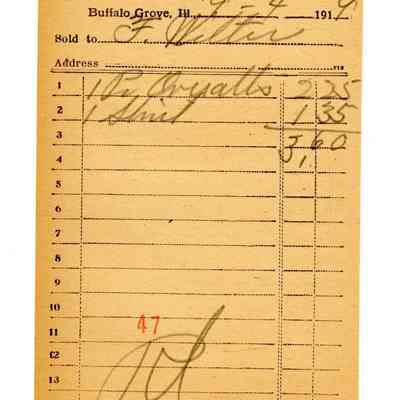 Buffalo Grove, Ill., 9 - 4 1919
Sold to F. Witter
Address
1 1 Pr Overalls 2 25
2 1 Shirt 1 35
3 3,60
4
4
5
6
7
8
9
10
11 47
12
13